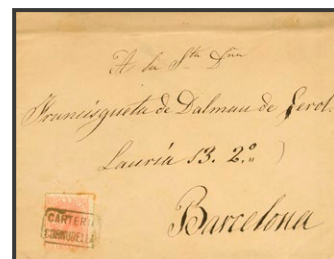 A la Sta Dña
Francisqueta de Dalmau de Ferol.
Lauria 13. 2º
Barcelona
CARTERI
CORNUDELLA